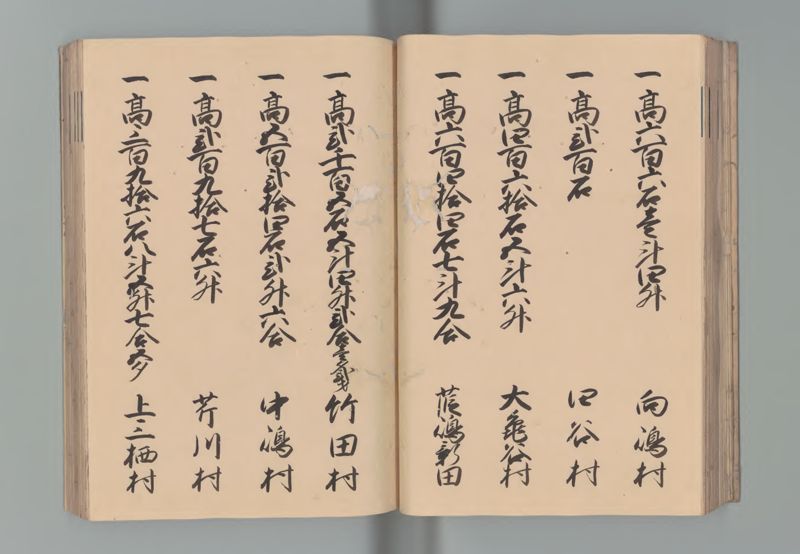 一高六百六石壱斗四升 向嶋村
一高弐百石 四谷村
一高四百六拾石五斗六升 大亀谷村
一高六百四拾四石七斗九合 葭嶋新田
一高弐千百五石五斗四升弐合壱弐 竹田村
一高五百弐拾四石弐升六合 中嶋村
一高弐百九拾七石六升 芹川村
一高三百九拾六石八斗五升七合五夕 上三栖村